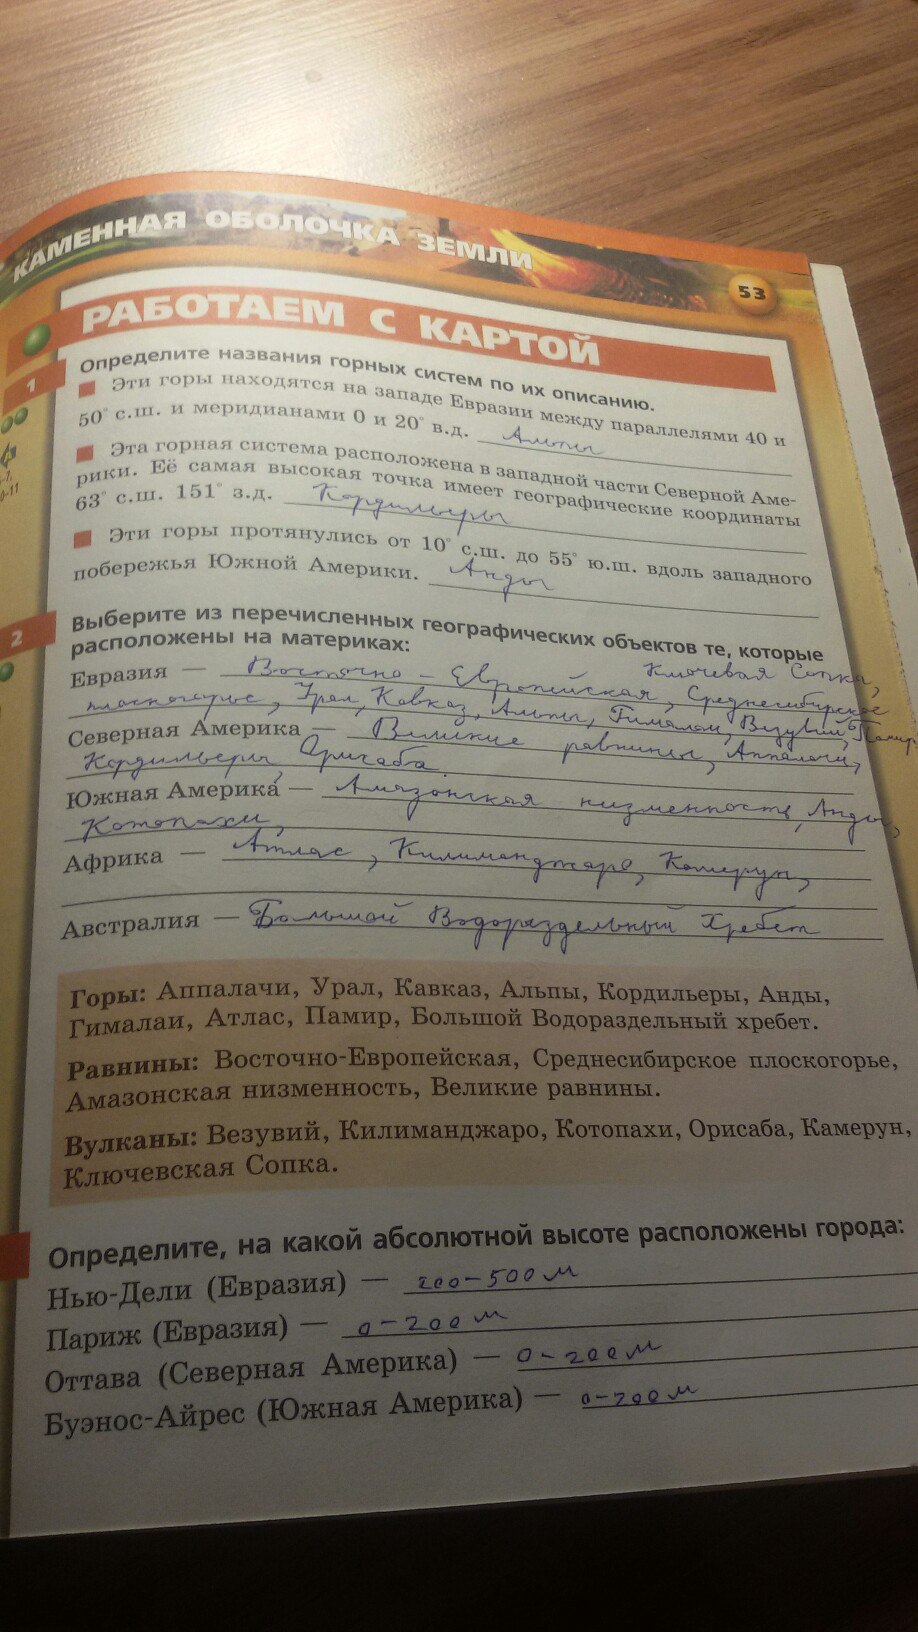 КАМЕННАЯ ОБОЛОЧКА ЗЕМЛИ
53
РАБОТАЕМ С КАРТОЙ
1
Определите названия горных систем по их описанию.
Эти горы находятся на западе Евразии между параллелями 40 и
50° с.ш. и меридианами 0 и 20° в.д. Альпы
Эта горная система расположена в западной части Северной Аме-
рики. Её самая высокая точка имеет географические координаты
63° с.ш. 151° з.д. Кордильеры
Эти горы протянулись от 10° с.ш. до 55° ю.ш. вдоль западного
побережья Южной Америки. Анды
2
Выберите из перечисленных географических объектов те, которые
расположены на материках:
Ключевая Сопка,
Евразия — Восточно-Европейская, Среднесибирское
плоскогорье, Урал, Кавказ, Альпы, Гималаи, Везувий, Памир
Северная Америка — Великие равнины, Аппалачи,
Кордильеры, Орисаба.
Южная Америка — Амазонская низменность, Анды,
Котопахи,
Африка — Атлас, Килиманджаро, Камерун,
Австралия — Большой Водораздельный Хребет
Горы: Аппалачи, Урал, Кавказ, Альпы, Кордильеры, Анды,
Гималаи, Атлас, Памир, Большой Водораздельный хребет.
Равнины: Восточно-Европейская, Среднесибирское плоскогорье,
Амазонская низменность, Великие равнины.
Вулканы: Везувий, Килиманджаро, Котопахи, Орисаба, Камерун,
Ключевская Сопка.
Определите, на какой абсолютной высоте расположены города:
Нью-Дели (Евразия) — 200-500 м
Париж (Евразия) — 0-200 м
Оттава (Северная Америка) — 0-200 м
Буэнос-Айрес (Южная Америка) — 0-200 м